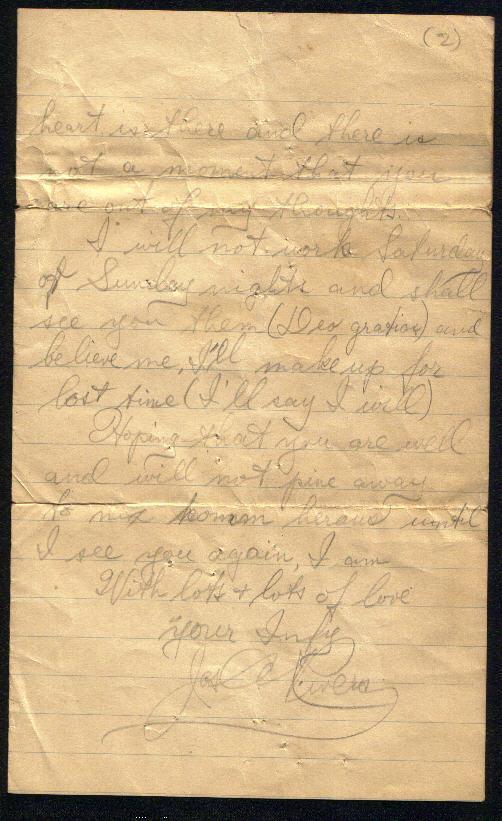 (2)
heart is there and there is
not a moment that you
are out of my thoughts.
I will not work Saturday
or Sunday nights and shall
see you then (Deo gratias) and
believe me, I'll make up for
lost time (I'll say I will)
Hoping that you are well
and will not pine away
to nix komm heraus until
I see you again, I am
With lots + lots of love
your
Jos Rivers